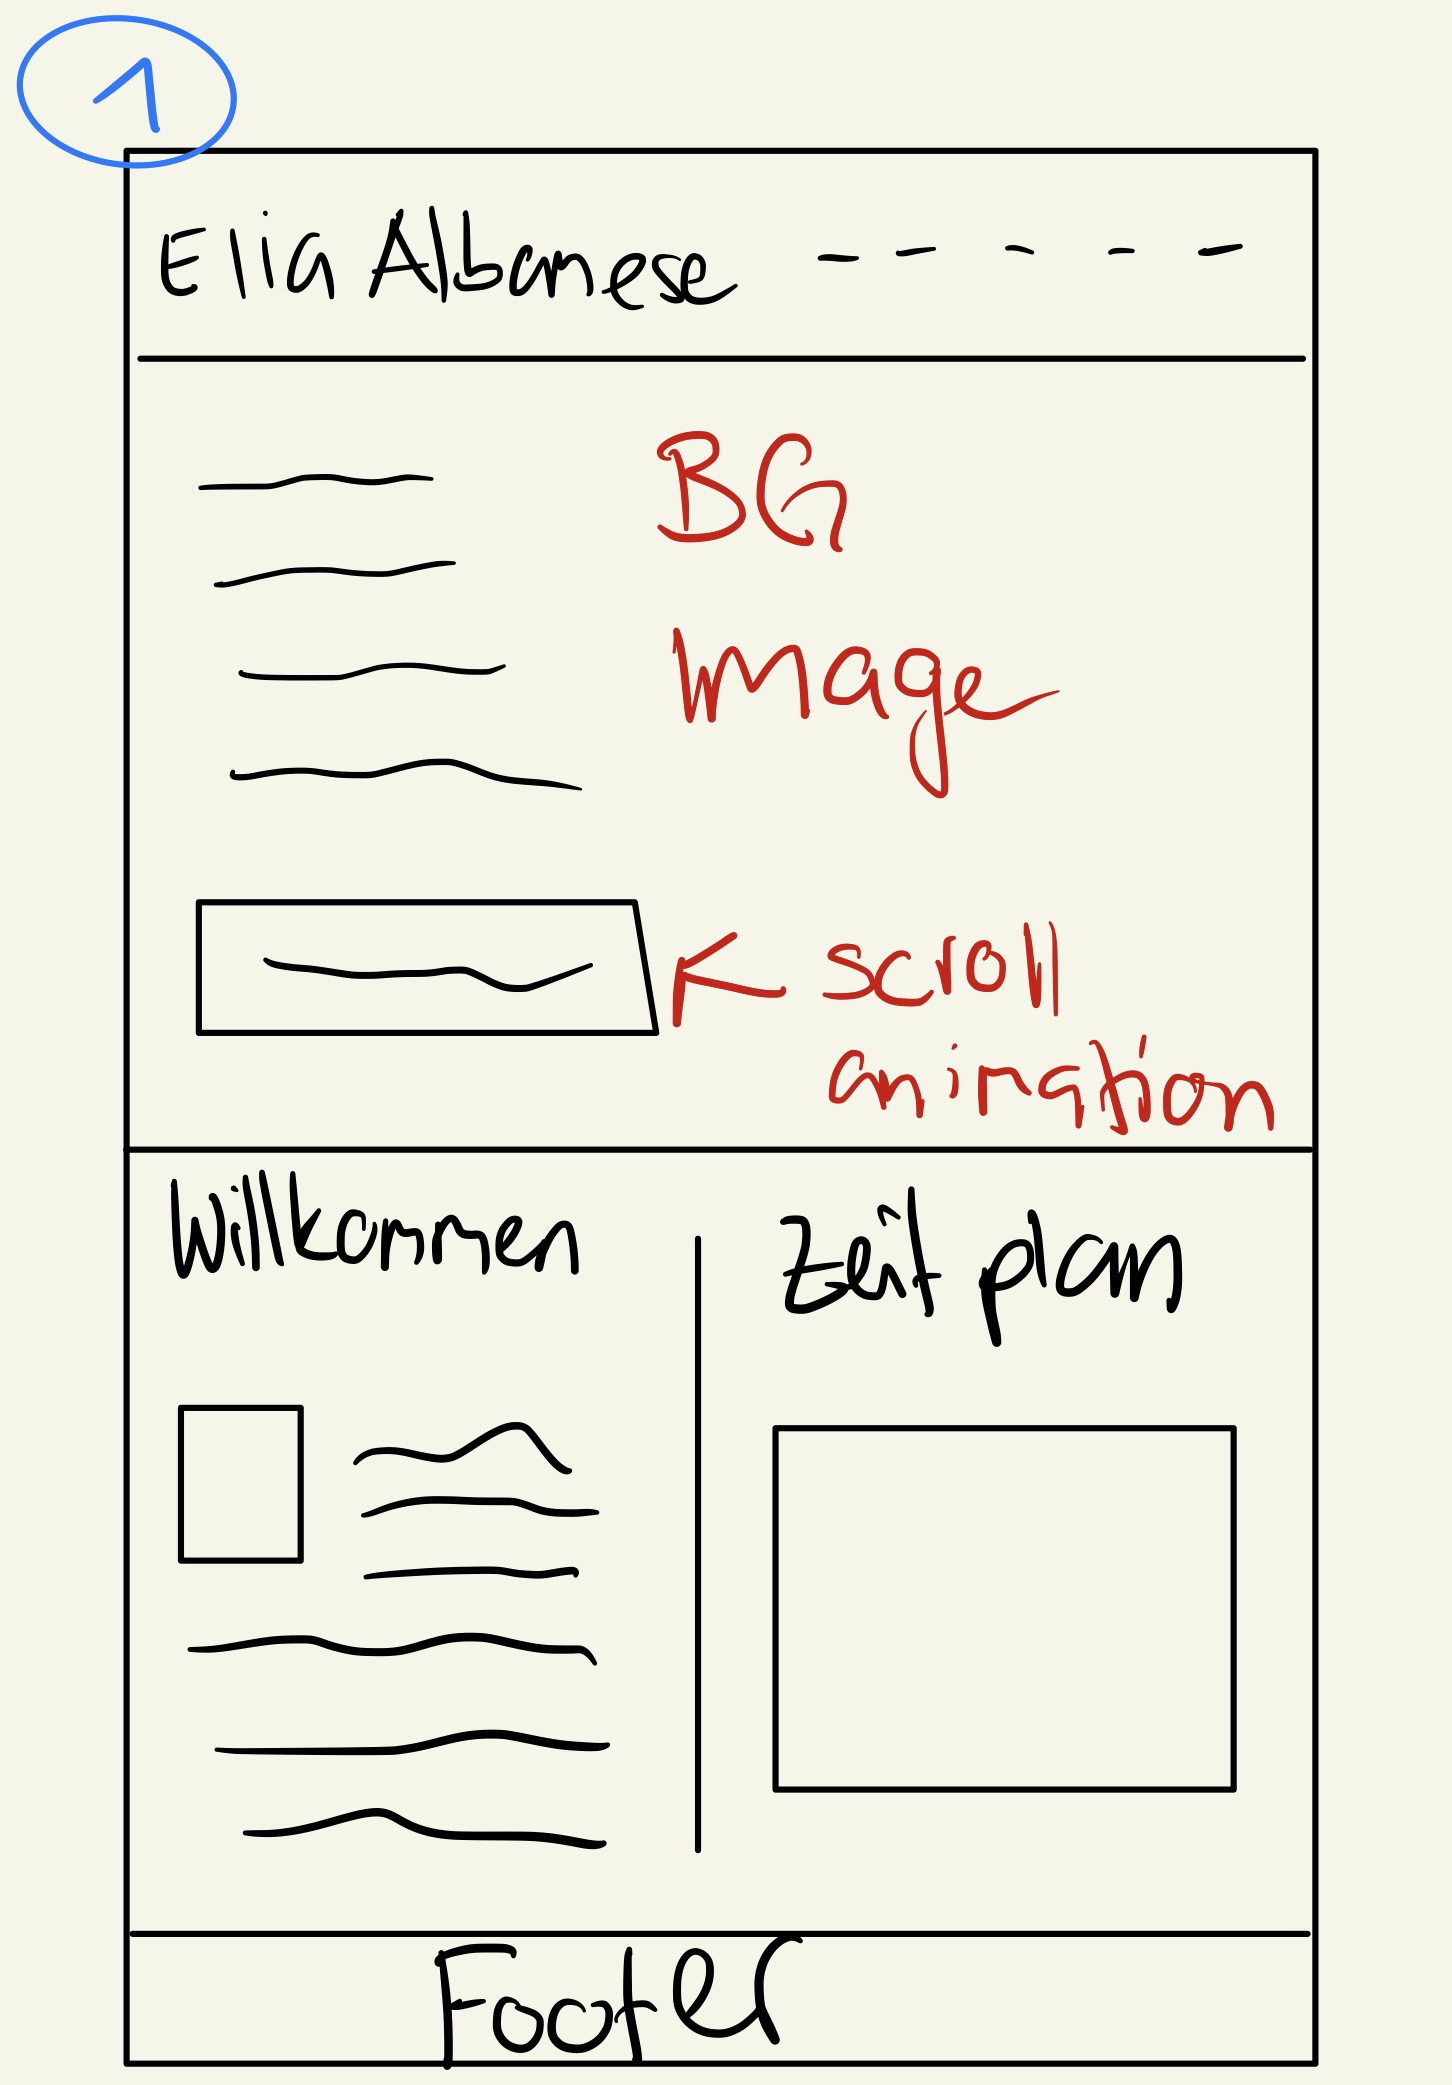 1
Elia Albanese
BG
Image
scroll
animation
Willkommen
Zeitplan
Footer